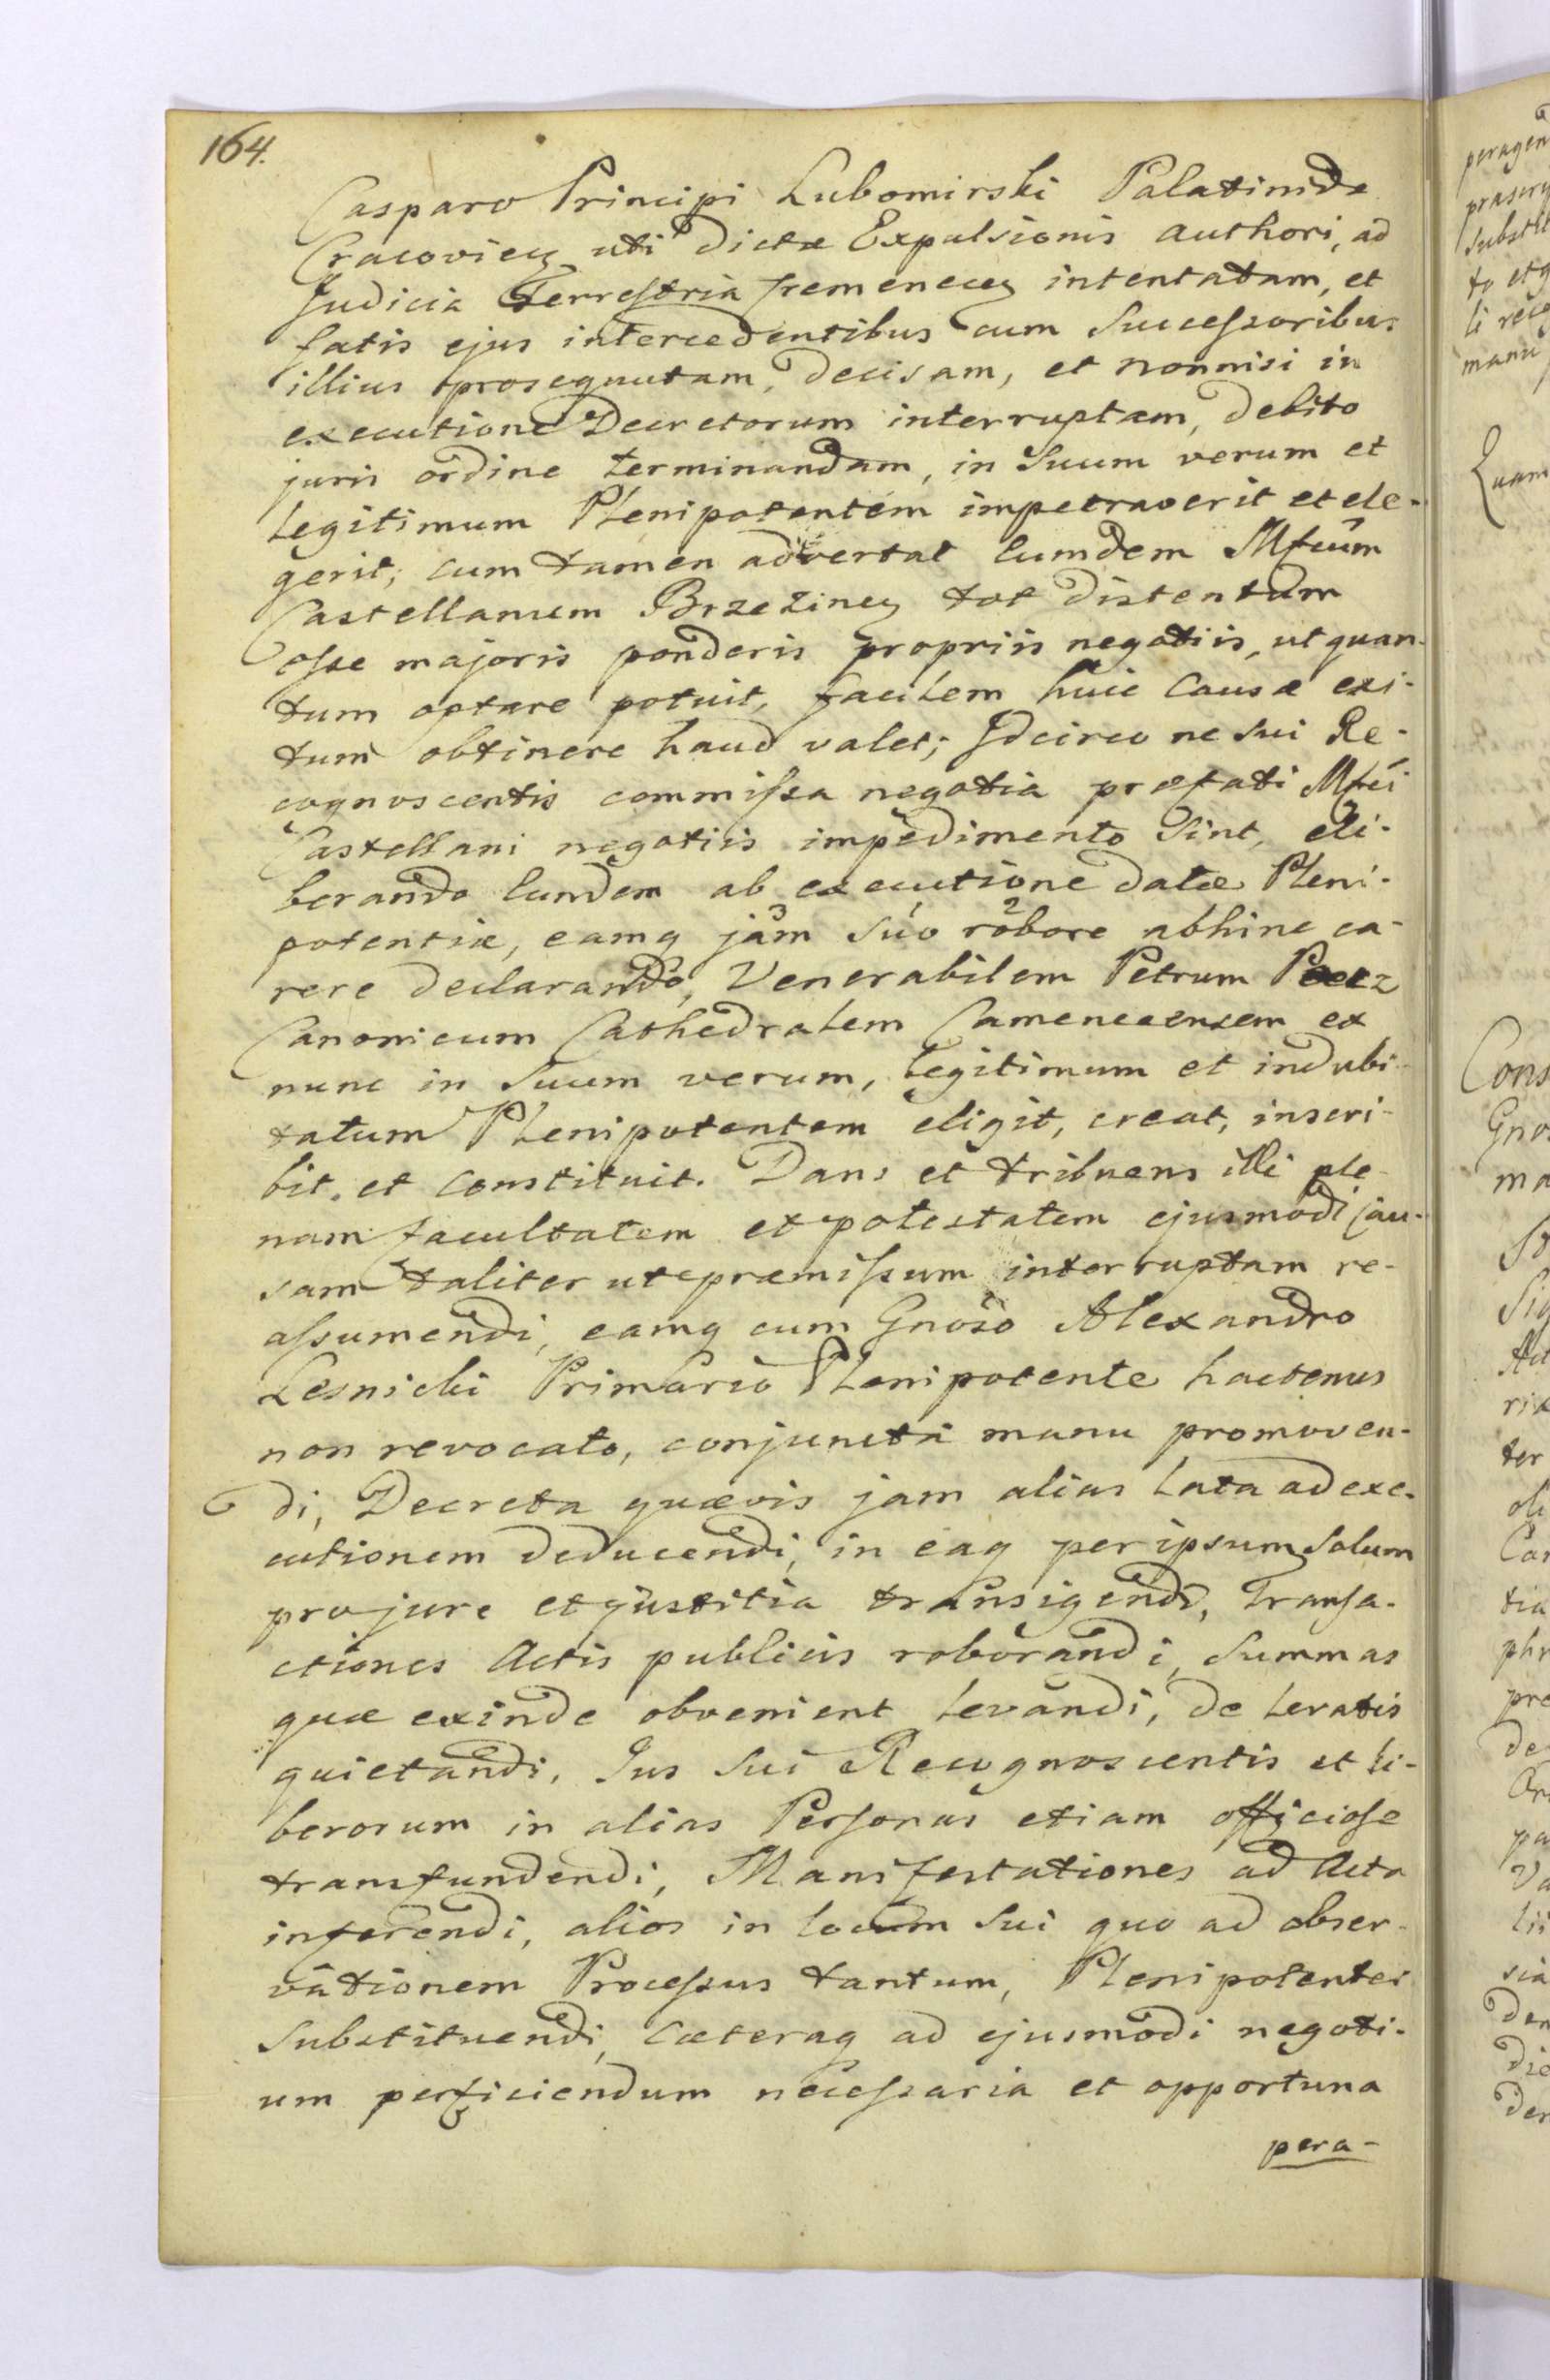 164.
Casparo Principi Lubomirski Palatinida
Cracovien uti dictæ Expulsionis authori, ad
Judicia Terrestria Cremenecen intentatam, et
fatis ejus intercedentibus cum Successoribus
illius prosequutam, decisam, et nonnisi in
executione Decretorum interruptam, debito
juris ordine terminandam, in Suum verum et
legitimum Plenipotentem impetraverit et ele-
gerit; cum tamen advertat Eumdem Mfcum
Castellanum Brzezinen tot distentum
esse majoris ponderis propriis negotiis, ut quan-
tum optare potuit, facilem huic Causæ exi-
tum obtinere haud valet; Idcirco ne sui Re-
cognoscentis commissa negotia præfati Mfci
Castellani negotiis impedimento sint, eli-
berando Eundem ab executione datæ Pleni-
potentiæ, eamq jam suo robore abhinc ca-
rere declarando, Venerabilem Petrum
Canonicum Cathedralem Camenecensem ex
nunc in Suum verum, legitimum et indubi-
tatum Plenipotentem eligit, creat, inscri-
bit, et constituit. Dans et tribuens illi ple-
nam facultatem et potestatem ejusmodi Cau-
sam taliter ut præmissum interruptam re-
assumendi, eamq cum Gnoso Alexandro
Lesnicki Primario Plenipotente hactenus
non revocato, conjuncta manu promoven-
di, Decreta quævis jam alias lata ad exe-
cutionem deducendi, in eaq per ipsum solum
pro jure et justitia transigendi, Transa-
ctiones Actis publicis roborandi, Summas
quæ exinde obvenient levandi, de levatis
quietandi, Jus sui Recognoscentis et li-
berorum in alias Personas etiam officiose
transfundendi, Manifestationes ad Acta
inferendi, alios in locum sui quo ad obser-
vationem Processus tantum, Plenipotentes
substituendi, cæteraq ad ejusmodi negoti-
um perficiendum necessaria et opportuna
pera-